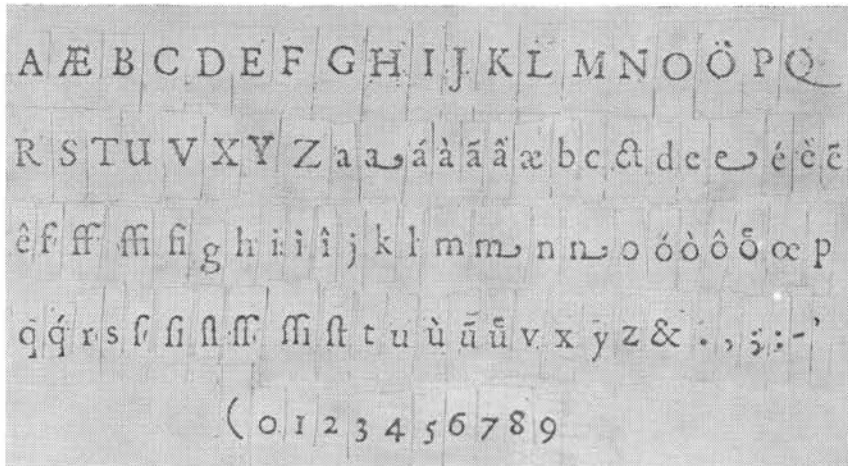 A Æ B C D E F G H I J K L M N O Ö P Q
R S T U V X Y Z a a á à ã â æ b c ct d e e é è ẽ
ê f ff ffi fi g h i ì î j k l m m n n o ó ò ô ő œ p
q q́ r s ſ ſi ſl ſſ ſſi ſt t u ù ũ ű v x ÿ z & . , ; : - ’
( 0 1 2 3 4 5 6 7 8 9